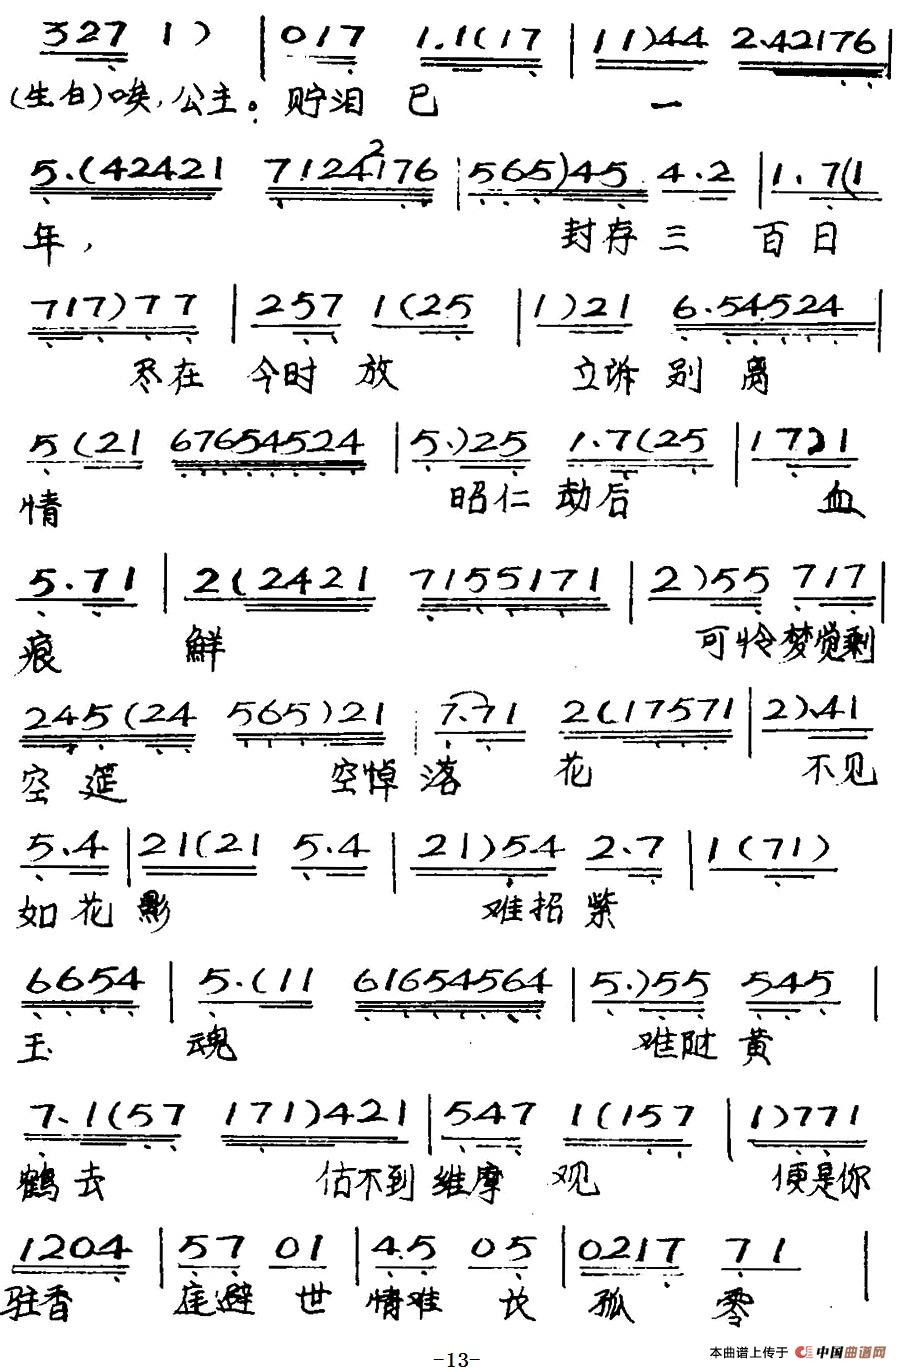 327 1 ) | 017 1.1(17 | 11)44 2.42176 |
(生白)唉,公主。贮泪 已 一
5.(42421 7124176 2 | 565)45 4.2 | 1.7(1
年, 封存 三 百 日
717)77 | 257 1(25 | 1)21 6.54524 |
尽在 今时 放 立诉 别 离
5(21 67654524 | 5.)25 1.7(25 | 1721
情 昭仁 劫后 血
5.71 | 2(2421 7155171 | 2)55 717 |
痕 鲜 可怜梦觉剩
245(24 565)21 | 7.71 2(.17571 | 2).41
空 筵 空悼 落 花 不见
5.4 | 21(21 5.4 | 21)5.4 2.7 | 1(71)
如花 影 难招 紫
6654 | 5.(11 61654564 | 5.)55 545 |
玉 魂 难随 黄
7.1(57 171)421 | 547 1(157 | 1)771
鹤去 估不到 维摩 观 便是你
1204 | 57 01 | 4.5 05 | 0217 71 |
驻香 庭避 世 情难 认 孤 零
本曲谱上传于 中国曲谱网
-13-